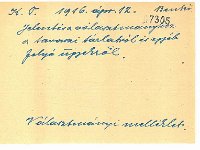 K. O. 1916. ápr. 12. Benkő
7305
Jelentés a választmányhoz
a tavaszi tárlatról és egyéb
folyó ügyekről.
Választmányi melléklet.